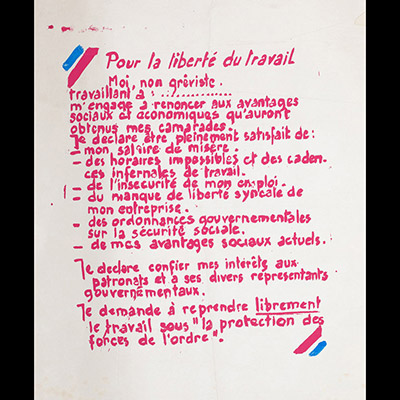 Pour la liberté du travail
Moi, non gréviste.
travaillant à : ..............
m'engage à renoncer aux avantages
sociaux et économiques qu'auront
obtenus mes camarades.
Je déclare être pleinement satisfait de :
- mon salaire de misère.
- des horaires impossibles et des caden-
ces infernales de travail.
- de l'insécurité de mon emploi.
- du manque de liberté syndicale de
mon entreprise.
- des ordonnances gouvernementales
sur la sécurité sociale.
- de mes avantages sociaux actuels.
Je déclare confier mes intérêts aux
patronats et à ses divers représentants
gouvernementaux.
Je demande à reprendre librement
le travail sous "la protection des
forces de l'ordre".